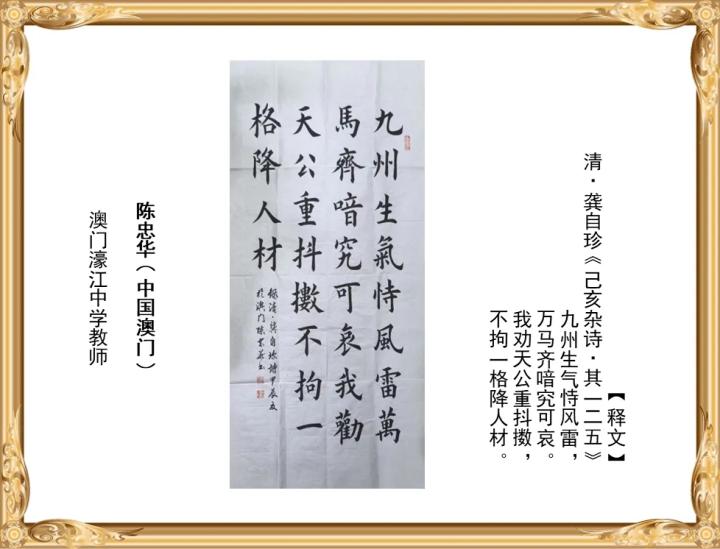 【释文】
清·龚自珍《己亥杂诗·其一二五》
九州生气恃风雷，
万马齐喑究可哀。
我劝天公重抖擞，
不拘一格降人材。
九州生氣恃風雷萬
馬齊喑究可哀我勸
天公重抖擻不拘一
格降人材
錄清·龔自珍詩甲辰夏
於澳門陳忠華书
陈忠华（中国澳门）
澳门濠江中学教师